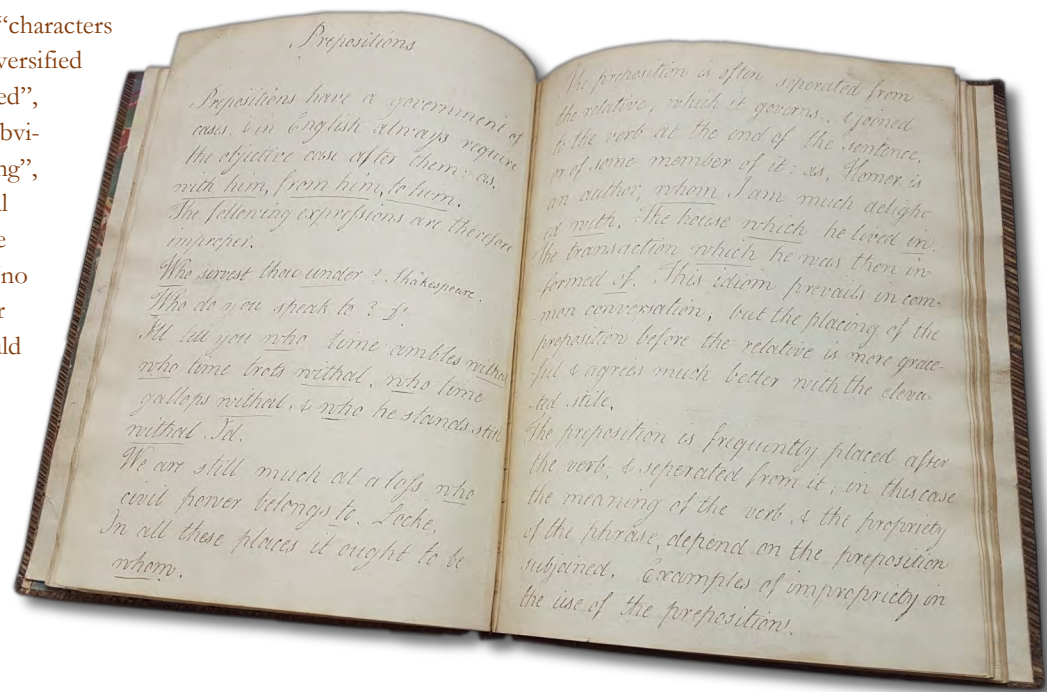 “characters
versified
ed”,
bvi-
ng”,
l
e
no
r
ld
Prepositions
Prepositions have a government of
cases, & in English always require
the objective case after them: as,
with him, from him, to him.
The following expressions are therefore
improper.
Who servest thou under? Shakespeare.
Who do you speak to? Id.
I'll tell you who time ambles withal
who time trots withal, who time
gallops withal, & who he stands still
withal. Id.
We are still much at a loss, who
civil power belongs to. Locke.
In all these places it ought to be
whom.
The preposition is often seperated from
the relative, which it governs, & joined
to the verb at the end of the sentence,
or of some member of it: as, Homer is
an author, whom I am much deligh-
ed with. The house which he lived in.
The transaction which he was then in-
formed of. This idiom prevails in com-
-mon conversation, but the placing of the
preposition before the relative is more grace-
-ful & agrees much better with the eleva-
-ted stile.
The preposition is frequently placed after
the verb, & seperated from it, in this case
the meaning of the verb, & the propriety
of the phrase, depend on the preposition
subjoined. Examples of impropriety in
the use of the preposition.